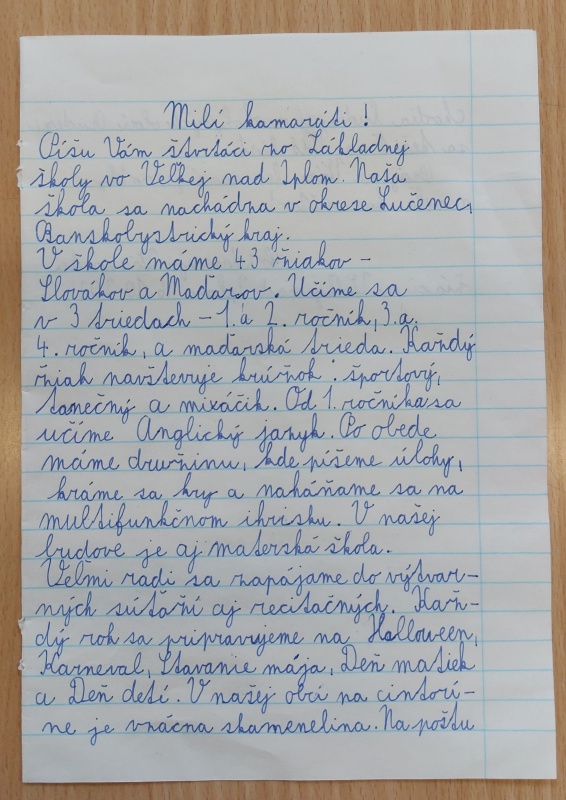 Milí kamaráti!
Píšu Vám štvrtáci zo Základnej
školy vo Veľkej nad Iplom. Naša
škola sa nachádza v okrese Lučenec,
Banskobystrický kraj.
V škole máme 43 žiakov -
Slovákov a Maďarov. Učíme sa
v 3 triedach - 1. a 2. ročník, 3. a
4. ročník, a maďarská trieda. Každý
žiak navštevuje krúžok: športový,
tanečný a mixáčik. Od 1. ročníka sa
učíme Anglický jazyk. Po obede
máme družinu, kde píšeme úlohy,
hráme sa hry a naháňame sa na
multifunkčnom ihrisku. V našej
budove je aj materská škola.
Veľmi radi sa zapájame do výtvar-
ných súťaží aj recitačných. Kaž-
dý rok sa pripravujeme na Halloween,
Karneval, Stavanie mája, Deň matiek
a Deň detí. V našej obci na cintorí-
ne je vzácna skamenelina. Na poštu